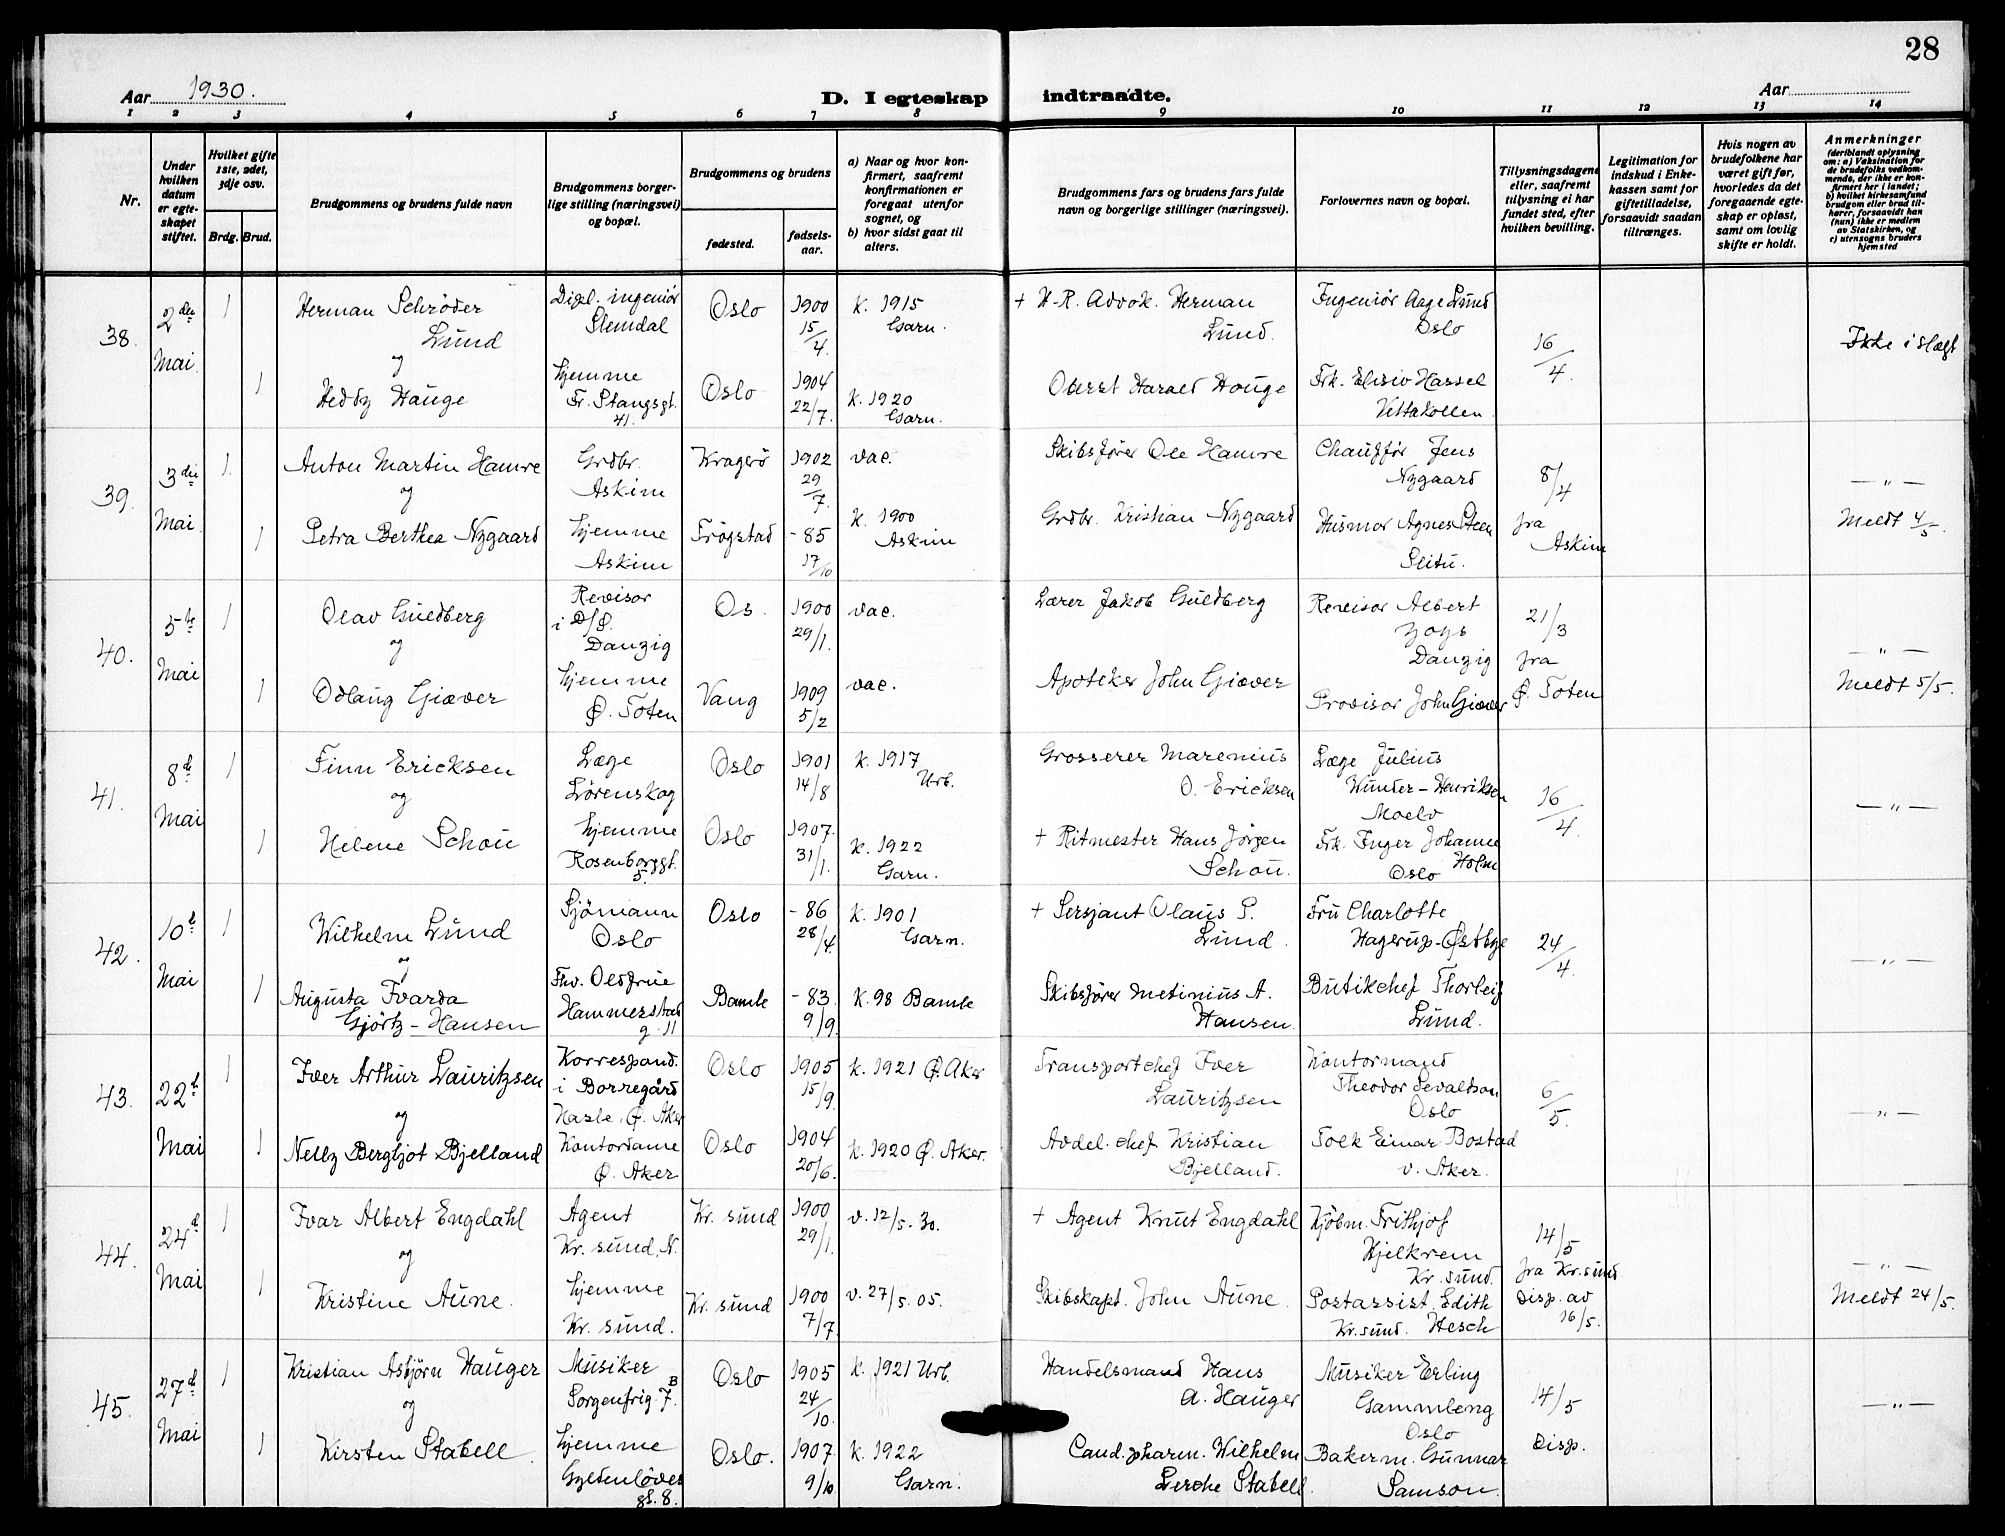 28
Aar 1930.
D. I egteskap indtraadte.
Aar
1 2 3 4 5 6 7 8 9 10 11 12 13 14
Nr.
Under hvilken datum er egteskapet stiftet.
Hvilket gifte 1ste, 2det, 3dje osv.
Brdg. Brud.
Brudgommens og brudens fulde navn
Brudgommens borgerlige stilling (næringsvei) og bopæl.
Brudgommens og brudens
fødested.
fødselsaar.
a) Naar og hvor konfirmert, saafremt konfirmationen er foregaat utenfor sognet, og
b) hvor sidst gaat til alters.
Brudgommens fars og brudens fars fulde navn og borgerlige stillinger (næringsvei).
Forlovernes navn og bopæl.
Tillysningsdagene eller, saafremt tillysning ei har fundet sted, efter hvilken bevilling.
Legitimation for indskud i Enkekassen samt for giftetilladelse, forsaavidt saadan tiltrænges.
Hvis nogen av brudefolkene har været gift før, hvorledes da det foregaaende egteskap er opløst, samt om lovlig skifte er holdt.
Anmerkninger (deriblandt oplysning om: a) Vaksination for de brudefolks vedkommende, der ikke er konfirmert her i landet; b) hvilket kirkesamfund brudgom eller brud tilhører, forsaavidt han (hun) ikke er medlem av Statskirken, og c) utensogns bruders hjemsted
38. 2den Mai
1 Herman Schrøder Lund
Dipl. ingeniør Slemdal
Oslo 1900 15/4.
K. 1915 Garn.
+ H-R. Advok. Herman Lund.
Ingeniør Aage Lund Oslo
16/4.
Ikke i slægt
og
1 Heddy Hauge
hjemme Fr. Stangsgt. 41.
Oslo 1904 22/7.
K. 1920 Garn.
Oberst Harald Hauge
Frk. Elisiv Hassel Vettakollen
39. 3die Mai
1. Anton Martin Hamre
Grdbr. Askim
Kragerø 1902 29/7.
vac.
Skibsfører Ole Hamre
Chauffør Jens Nygaard
8/4 fra Askim
— " —
Meldt 4/5.
og
1 Petra Berthea Nygaard
hjemme Askim
Frøgstad - 85 17/10
K. 1900 Askim
Grdbr. Kristian Nygaard
Husmor Agnes Steen
40. 5te Mai
1 Olav Guldberg
Revisor i D/S. Danzig
Os. 1900 29/1.
vac.
Lærer Jakob Guldberg
Revisor Albert
Danzig
21/3 fra Ø. Toten
— " —
Meldt 5/5.
og
1 Odlaug Giæver
hjemme Ø. Toten
Vang 1909 5/2
vac.
Apoteker John Giæver
Provisor John Giæver
41. 8d Mai
1 Finn Ericksen
Læge Lørenskog
Oslo 1901 14/8
K. 1917 Urb.
Grosserer Marenius O. Ericksen
Læge Julius Wunder-Henriksen Moelv
16/4.
— " —
og
1 Helene Schou
hjemme Rosenborggt. 5.
Oslo 1907. 31/1.
K. 1922 Garn.
+ Ritmester Hans Jørgen Schou.
Frk. Inger Johanne Holm Oslo
42. 10d Mai
1 Wilhelm Lund
Sjømann Oslo
Oslo - 86 28/4.
K. 1901 Garn.
+ Sersjant Olaus S. Lund.
Fru Charlotte Hagerup-Østbye
24/4.
— " —
og
1 Augusta Ivarda Gjørtz-Hansen
Fhv. Oldfrue Hammerstad g. 11
Bamle - 83. 9/9.
K. 98 Bamle
Skibsfører Metinius A. Hansen.
Butikchef Thorleif Lund.
43. 22d Mai
1 Iver Arthur Lauritzsen
Korrespond. i Borregård Hasle, Ø. Aker
Oslo 1905 15/9.
K. 1921 Ø. Aker
Transportchef Iver Lauritzsen
Kontormand Theodor Sevaldson Oslo
6/5.
— " —
og
1 Nelly Bergljot Bjelland
Kontordame Ø. Aker
Oslo 1904 20/6.
K. 1920 Ø. Aker.
Avdel. chef Kristian Bjelland.
Tolk Einar Bostad v. Aker.
44. 24d Mai
1 Ivar Albert Engdahl
Agent Kr. sund, N.
Kr. sund 1900 29/1.
v. 12/5. 30.
+ Agent Knut Engdahl
Kjøbm. Frithjof Hjelkrem Kr. sund.
14/5 fra Kr. sund Disp. av 16/5.
— " —
Meldt 24/5.
og
1 Kristine Aune.
hjemme Kr. sund.
Kr. sund 1900 7/7.
v. 27/5. 05.
Skibskapt. John Aune.
Postassist. Edith Hesch Kr. sund.
45. 27d Mai
1 Kristian Asbjørn Hauger
Musiker Sorgenfrig. 7 B.
Oslo 1905 24/10.
K. 1921 Urb.
Handelsmand Hans A. Hauger
Musiker Erling Gammleng Oslo
14/5 Disp.
— " —
og
1 Kirsten Stabell.
hjemme Gyldenløves gt. 8.
Oslo. 1907 9/10
K. 1922 Garn.
Cand. pharm. Wilhelm Lerche Stabell.
Bakerm. Gunnar Samson.